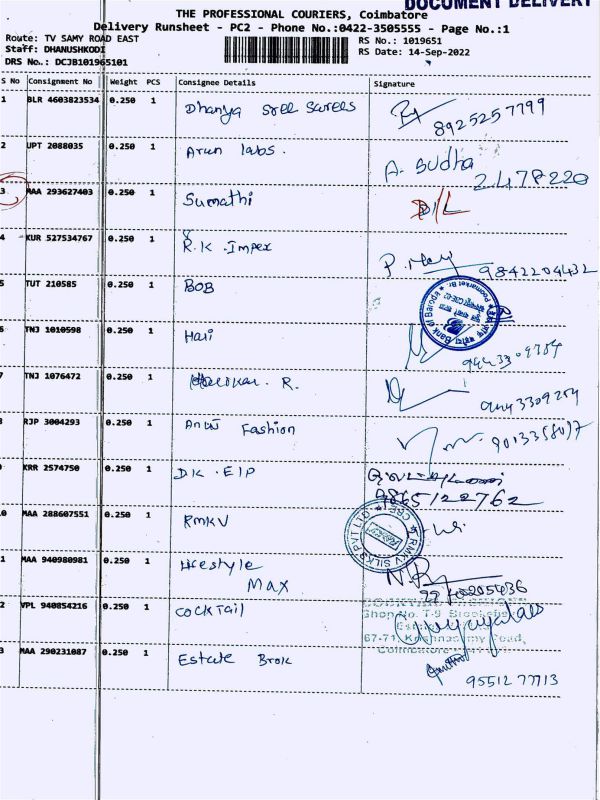 DOCUMENT DELIVERY
THE PROFESSIONAL COURIERS, Coimbatore
Delivery Runsheet - PC2 - Phone No.:0422-3505555 - Page No.:1
Route: TV SAMY ROAD EAST
RS No.: 1019651
Staff: DHANUSHKODI
RS Date: 14-Sep-2022
DRS No.: DCJB101965101
S No Consignment No Weight PCS Consignee Details Signature
1 BLR 4603823534 0.250 1 Dhanya Sree Sarees
8925257799
2 UPT 2088035 0.250 1 Arun labs. A. Sudha
2478220
3 MAA 293627403 0.250 1 Sumathi D/L
4 KUR 527534767 0.250 1 R.K. Impex
9842204432
5 TUT 210585 0.250 1 BOB
Bank of Baroda
6 TNJ 1010598 0.250 1 Hari
7 TNJ 1076472 0.250 1 R.
8 RJP 3004293 0.250 1 Fashion
9 KRR 2574750 0.250 1 DK. EIP
9865122762
0 MAA 288607551 0.250 1 RMKV
RMKV SILKS PVT LTD. CBE
1 MAA 940980981 0.250 1 Lifestyle
Max
2 VPL 940854216 0.250 1 Cocktail
Shop No. T-9
67-71, Krishnasamy Road,
Coimbatore
3 MAA 290231087 0.250 1 Estate Brok
95512 77713